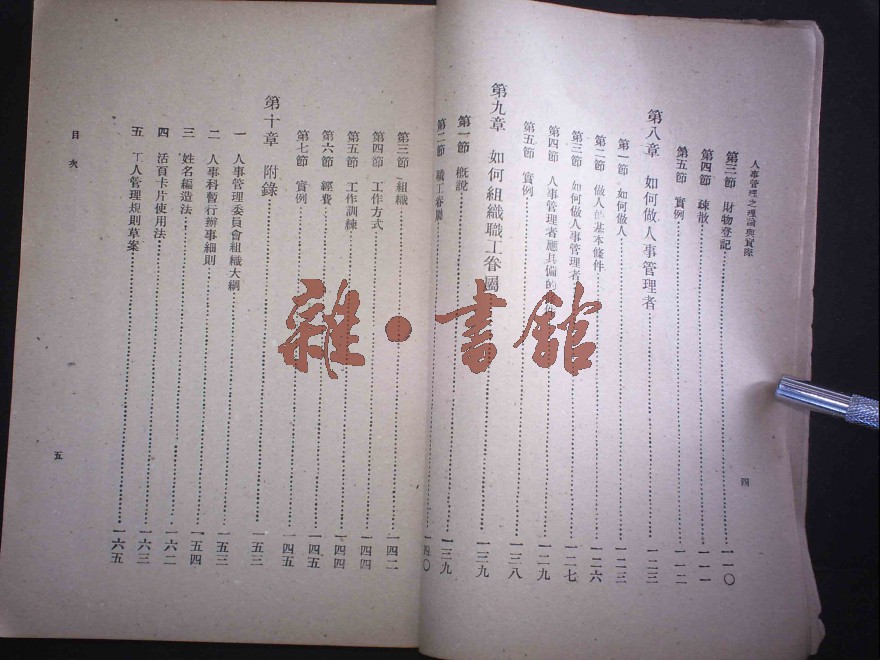 人事管理之理論與實際
第三節 財物登記 一一〇
第四節 疎散 一一一
第五節 實例 一一二
第八章 如何做人事管理者 一二三
第一節 如何做人 一二三
第二節 做人的基本條件 一二六
第三節 如何做人事管理者 一二七
第四節 人事管理者應具備的 一二九
第五節 實例 一三八
第九章 如何組織職工眷團 一三九
第一節 概說 一三九
第二節 職工眷團 一四〇
四
第三節 組織 一四二
第四節 工作方式 一四四
第五節 工作訓練 一四四
第六節 經費 一四五
第七節 實例 一四五
第十章 附錄 一五三
一 人事管理委員會組織大綱 一五三
二 人事科暫行辦事細則 一五四
三 姓名編造法 一六二
四 活頁卡片使用法 一六三
五 工人管理規則草案 一六五
目次
五
雜·書館